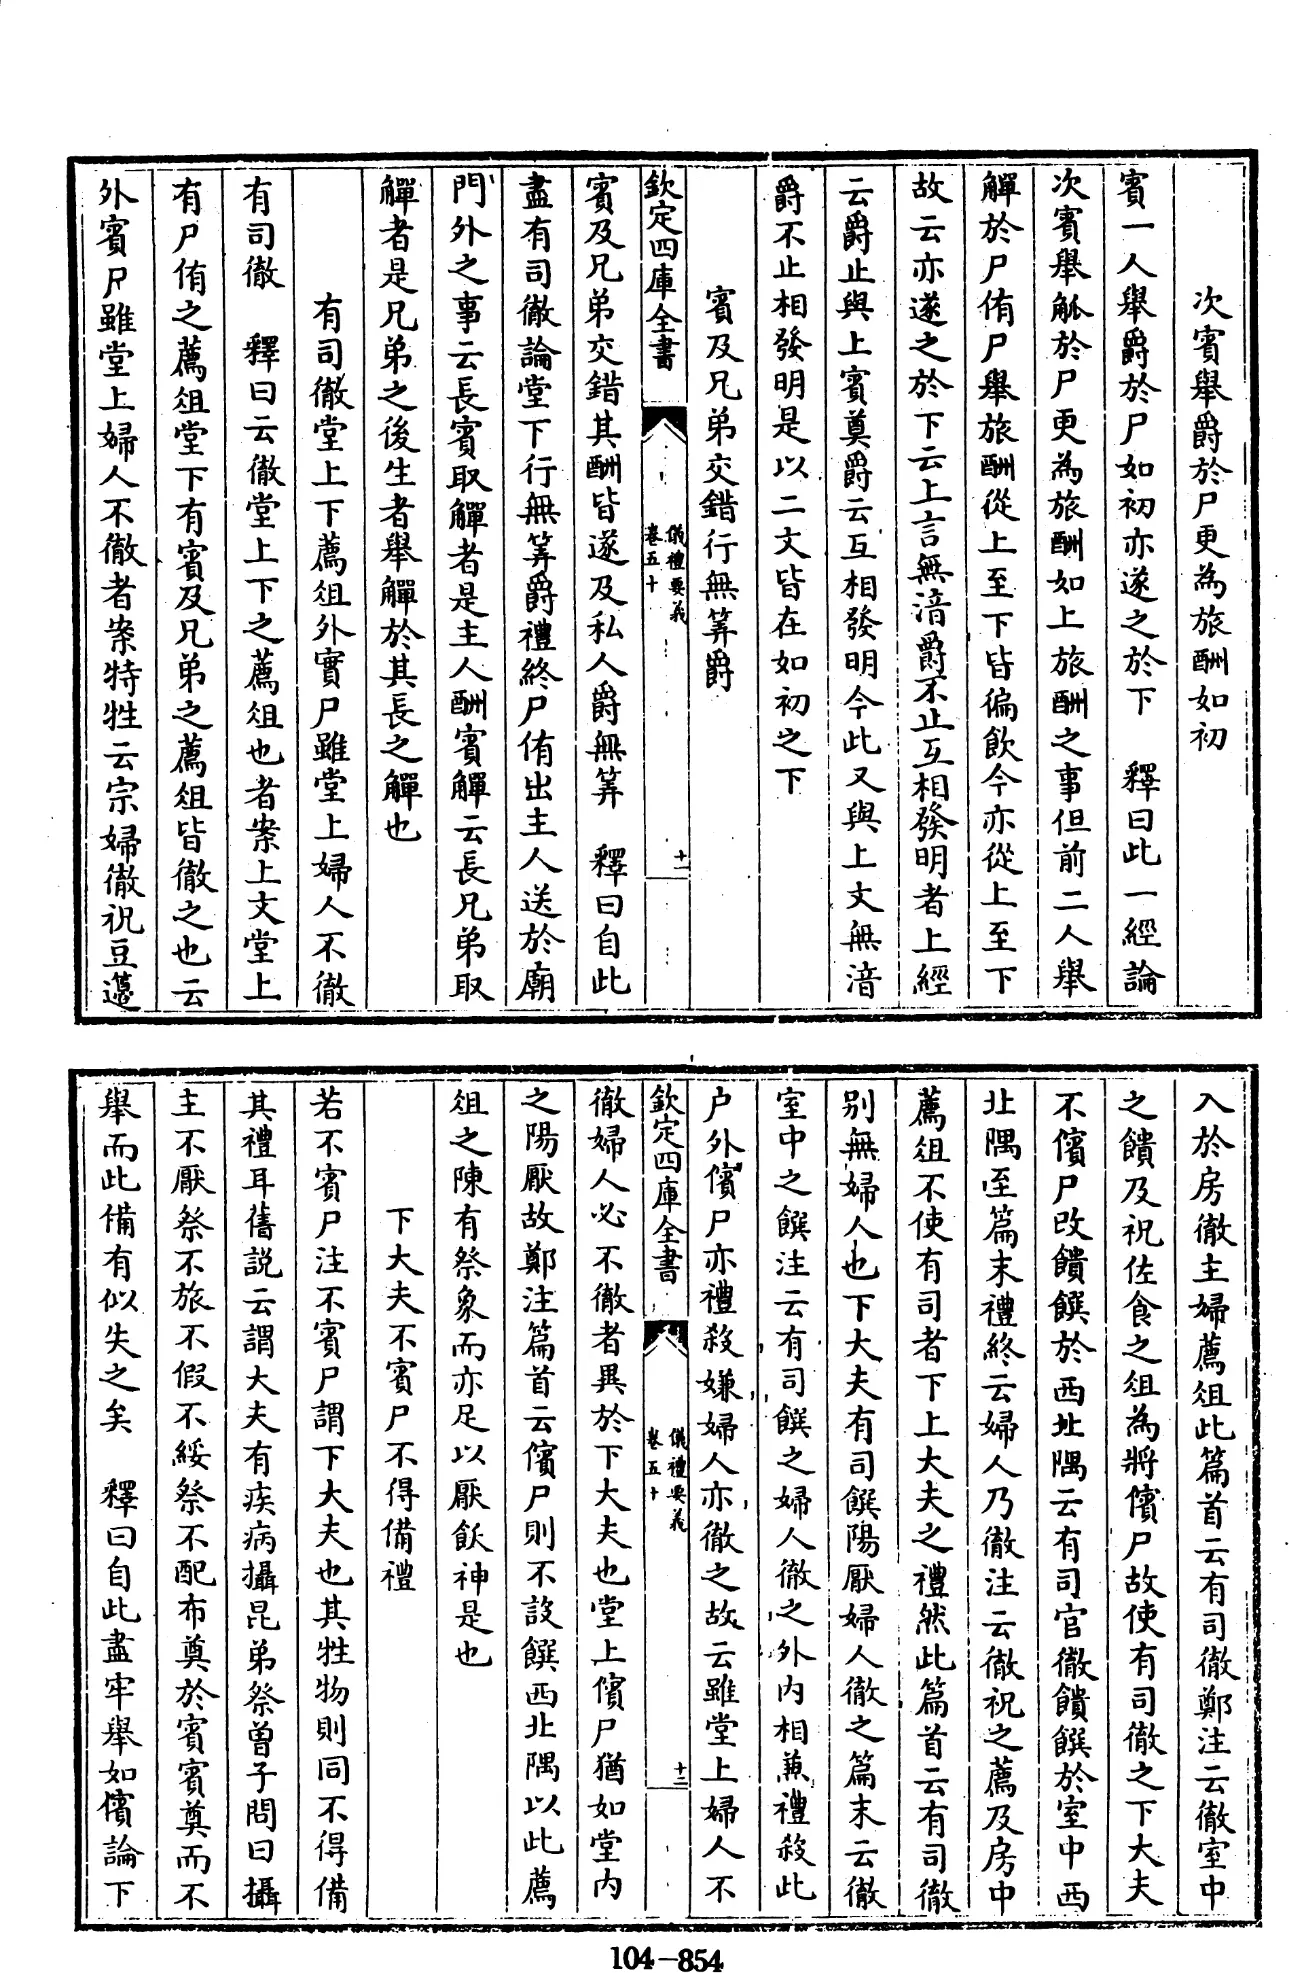 次賓舉爵於尸更為旅酬如初
賓一人舉爵於尸如初亦遂之於下　釋曰此一經論
次賓舉觚於尸更為旅酬如上旅酬之事但前二人舉
觶於尸侑尸舉旅酬從上至下皆徧飲今亦從上至下
故云亦遂之於下云上言無湆爵不止互相發明者上經
云爵止與上賓奠爵云互相發明今此又與上文無湆
爵不止相發明是以二文皆在如初之下
賓及兄弟交錯行無筭爵
欽定四庫全書　儀禮要義 卷五十　十一
賓及兄弟交錯其酬皆遂及私人爵無筭　釋曰自此
盡有司徹論堂下行無筭爵禮終尸侑出主人送於廟
門外之事云長賓取觶者是主人酬賓觶云長兄弟取
觶者是兄弟之後生者舉觶於其長之觶也
有司徹堂上下薦俎外賓尸雖堂上婦人不徹
有司徹　釋曰云徹堂上下之薦俎也者案上文堂上
有尸侑之薦俎堂下有賓及兄弟之薦俎皆徹之也云
外賓尸雖堂上婦人不徹者案特牲云宗婦徹祝豆籩
入於房徹主婦薦俎此篇首云有司徹鄭注云徹室中
之饋及祝佐食之俎為將儐尸故使有司徹之下大夫
不儐尸改饋饌於西北隅云有司官徹饋饌於室中西
北隅至篇末禮終云婦人乃徹注云徹祝之薦及房中
薦俎不使有司者下上大夫之禮然此篇首云有司徹
別無婦人也下大夫有司饌陽厭婦人徹之篇末云徹
室中之饌注云有司饌之婦人徹之外內相兼禮殺此
户外儐尸亦禮殺嫌婦人亦徹之故云雖堂上婦人不
欽定四庫全書　儀禮要義 卷五十　十二
徹婦人必不徹者異於下大夫也堂上儐尸猶如堂內
之陽厭故鄭注篇首云儐尸則不設饌西北隅以此薦
俎之陳有祭象而亦足以厭飫神是也
下大夫不賓尸不得備禮
若不賓尸注不賓尸謂下大夫也其牲物則同不得備
其禮耳舊說云謂大夫有疾病攝昆弟祭曾子問曰攝
主不厭祭不旅不假不綏祭不配布奠於賓賓奠而不
舉而此備有似失之矣　釋曰自此盡牢舉如儐論下
104-854